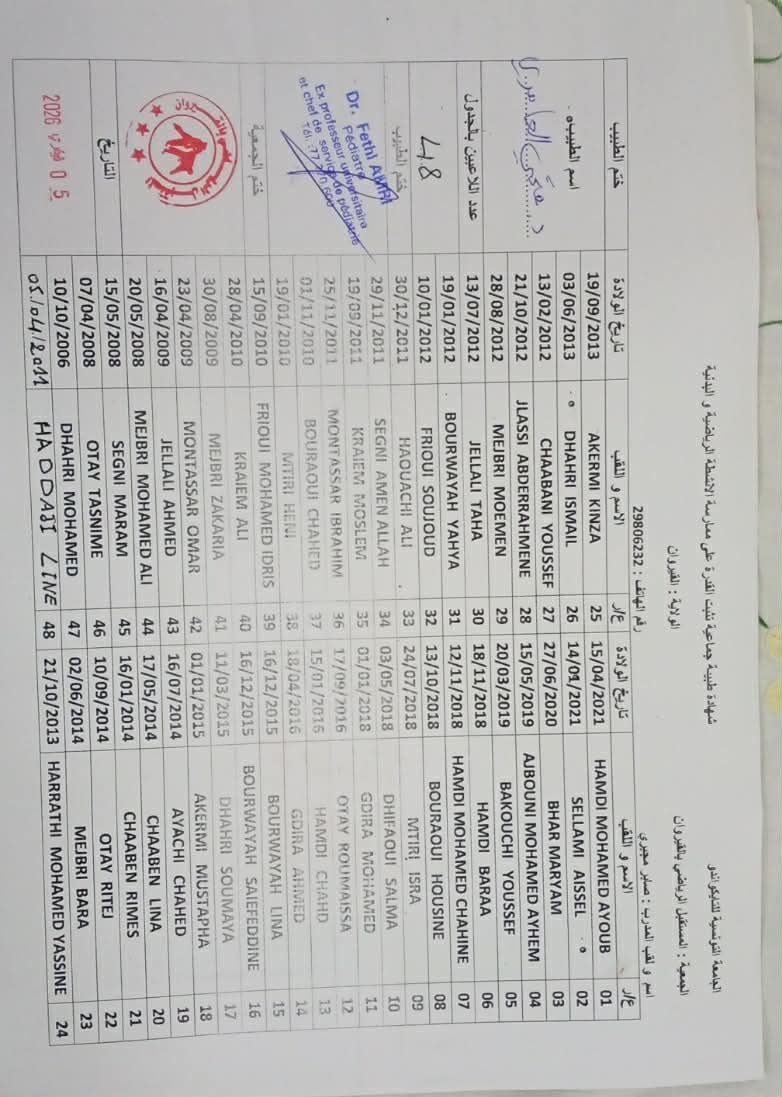 الجامعة التونسية للتايكواندو
شهادة طبية جماعية تثبت القدرة على ممارسة الانشطة الرياضية و البدنية
الجمعية : المستقبل الرياضي بالقيروان الولاية : القيروان
اسم و لقب المدرب : صابر مجبري رقم الهاتف : 29806232
ع/ر الاسم و اللقب تاريخ الولادة ع/ر الاسم و اللقب تاريخ الولادة ختم الطبيب
01 HAMDI MOHAMED AYOUB 15/04/2021 25 AKERMI KINZA 19/09/2013
02 SELLAMI AISSEL 26 DHAHRI ISMAIL 03/06/2013 اسم الطبيب
03 BHAR MARYAM 27/06/2020 27 CHAABANI YOUSSEF 13/02/2012
04 AJBOUNI MOHAMED AYHEM 15/05/2019 28 JLASSI ABDERRAHMENE 21/10/2012
05 BAKOUCHI YOUSSEF 20/03/2019 29 MEJBRI MOEMEN 28/08/2012
06 HAMDI BARAA 18/11/2018 30 JELLALI TAHA 13/07/2012 عدد اللاعبين بالجدول
07 HAMDI MOHAMED CHAHINE 12/11/2018 31 BOURWAYAH YAHYA 19/01/2012
08 BOURAOUI HOUSINE 13/10/2018 32 FRIOUI SOUJOUD 10/01/2012 48
09 MTIRI ISRA 24/07/2018 33 HAOUACHI ALI 30/12/2011 ختم الطبيب
10 DHIFAOUI SALMA 03/05/2018 34 SEGNI AMEN ALLAH 29/11/2011
11 GDIRA MOHAMED 01/01/2018 35 KRAIEM MOSLEM 19/09/2011
12 OTAY ROUMAISSA 17/09/2016 36 MONTASSAR IBRAHIM 25/11/2011
13 HAMDI CHAHD 15/01/2016 37 BOURAOUI CHAHED 01/11/2010
14 GDIRA AHMED 18/04/2016 38 MTIRI HENI 19/01/2010
15 BOURWAYAH LINA 16/12/2015 39 FRIOUI MOHAMED IDRIS 15/09/2010 ختم الجمعية
16 BOURWAYAH SAIEFEDDINE 16/12/2015 40 KRAIEM ALI 28/04/2010
17 DHAHRI SOUMAYA 11/03/2015 41 MEJBRI ZAKARIA 30/08/2009
18 AKERMI MUSTAPHA 01/01/2015 42 MONTASSAR OMAR 23/04/2009
19 AYACHI CHAHED 16/07/2014 43 JELLALI AHMED 16/04/2009
20 CHAABEN LINA 17/05/2014 44 MEJBRI MOHAMED ALI 20/05/2008
21 CHAABEN RIMES 16/01/2014 45 SEGNI MARAM 15/05/2008 التاريخ
22 OTAY RITEJ 10/09/2014 46 OTAY TASNIME 07/04/2008
23 MEJBRI BARA 02/06/2014 47 DHAHRI MOHAMED 10/10/2006
24 HARRATHI MOHAMED YASSINE 21/10/2013 48 HADDAJI LINE 05/04/2011
Dr. Fethi AMRI
Pédiatre
Ex professeur universitaire
et chef de service de pédiatrie
05 فيفري 2026